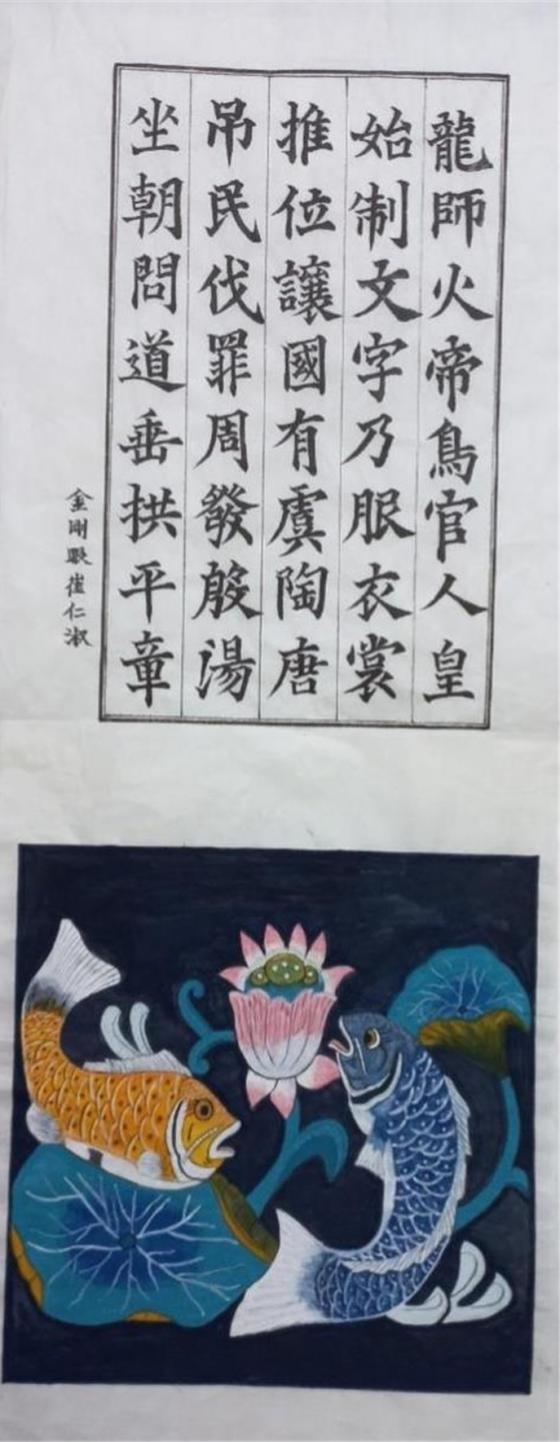 龍師火帝鳥官人皇
始制文字乃服衣裳
推位讓國有虞陶唐
弔民伐罪周發殷湯
坐朝問道垂拱平章
金剛眼崔仁淑